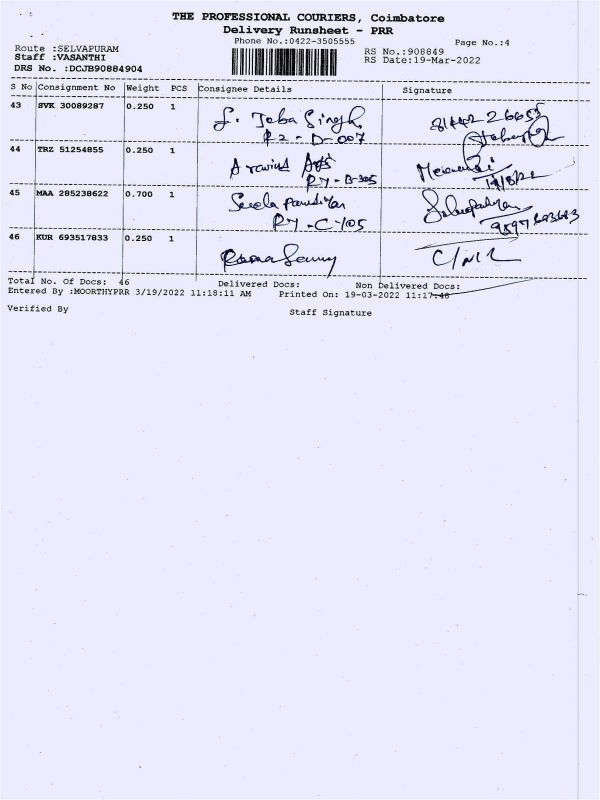 THE PROFESSIONAL COURIERS, Coimbatore
Delivery Runsheet - PRR
Phone No.:0422-3505555 Page No.:4
Route :SELVAPURAM RS No.:908849
Staff :VASANTHI RS Date:19-Mar-2022
DRS No. :DCJB90884904
S No Consignment No Weight PCS Consignee Details Signature
43 SVK 30089287 0.250 1 J. Jeba Singh,
P2 - D-007
44 TRZ 51254855 0.250 1 Aravind
P7 - B-305
45 MAA 285238622 0.700 1 Seela Pandiyan
P7 - C-105
46 KUR 693517833 0.250 1
Total No. Of Docs: 46 Delivered Docs: Non Delivered Docs:
Entered By :MOORTHYPRR 3/19/2022 11:18:11 AM Printed On: 19-03-2022 11:17:48
Verified By Staff Signature